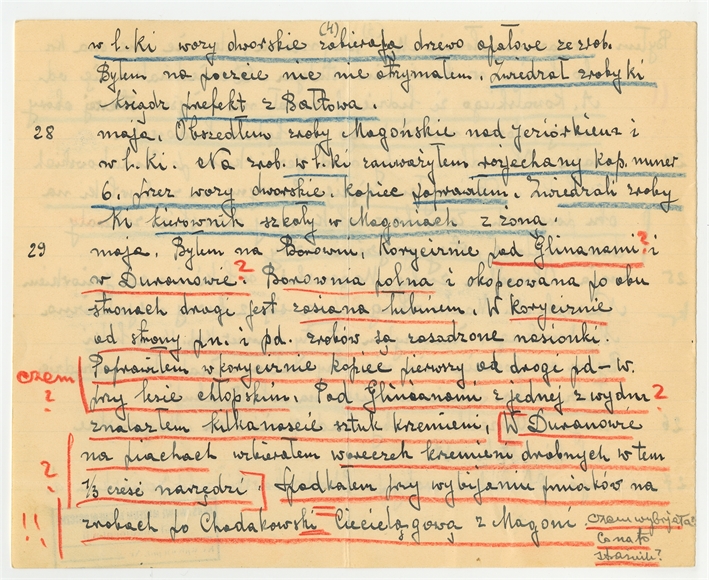 (4)
w l. ki wozy dworskie zabierają drzewo opałowe ze zrob.
Byłem na poczcie nic nie otrzymałem. Zwiedzał zroby ki
ksiądz prefekt z Bałtowa.
28 maja. Obszedłem zroby Magońskie nad Jeziórkiem i
w l. ki. Na zrob. w l. ki zauważyłem rozjechany kop. numer
6. Przez wozy dworskie. kopiec poprawiłem. Zwiedzali zroby
ki kierownik szkoły w Magoniach z żoną.
29 maja. Byłem na Borowni, Korycirnie pod Glinanami? i
w Duranowie? Borownia polna i okopcowana po obu
stronach drogi jest zasiana łubinem. W Korycirnie
od strony pn. i pd. zrobów są zasadzone nasionki.
Poprawiłem w korycirnie kopiec pierwszy od drogi pd-w.
czem ?
przy lesie chłopskim. Pod Glinianami z jednej z wydm ?
znalazłem kilkanaście sztuk krzemieni. W Duranowie
na piachach wzbierałem woreczek krzemieni drobnych w tem
? 1/3 cześć narzędzi. Spotkałem przy wybijaniu pniaków na
!! zrobach po Chodakowski Ciecielągową z Magoni czem wybijała?
Co na to
strażnik?